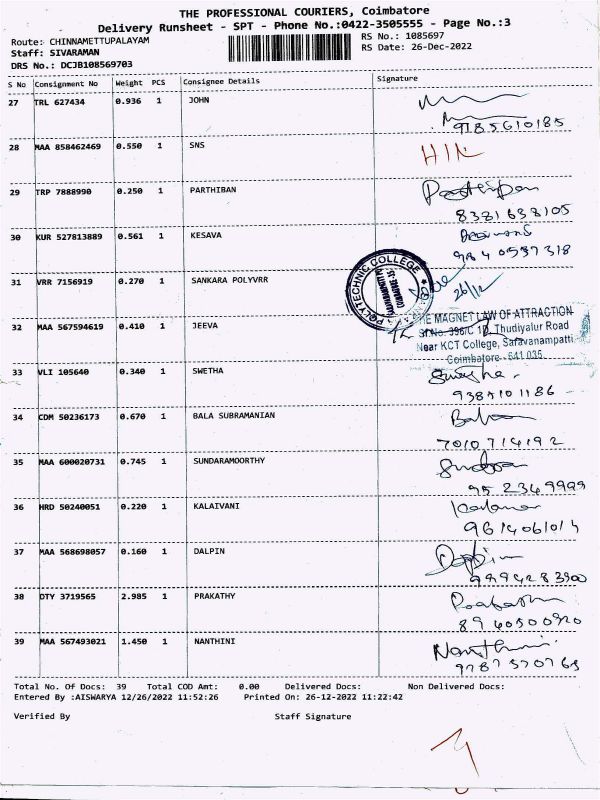 THE PROFESSIONAL COURIERS, Coimbatore
Delivery Runsheet - SPT - Phone No.:0422-3505555 - Page No.:3
Route: CHINNAMETTUPALAYAM
RS No.: 1085697
Staff: SIVARAMAN
RS Date: 26-Dec-2022
DRS No.: DCJB108569703
S No Consignment No Weight PCS Consignee Details Signature
27 TRL 627434 0.936 1 JOHN
9785610185
28 MAA 858462469 0.550 1 SNS
29 TRP 7888990 0.250 1 PARTHIBAN
8381638105
30 KUR 527813889 0.561 1 KESAVA
9840537318
31 VRR 7156919 0.270 1 SANKARA POLYVRR
POLYTECHNIC COLLEGE
26/12
32 MAA 567594619 0.410 1 JEEVA
THE MAGNET LAW OF ATTRACTION
Sf.No. 396/C 1D, Thudiyalur Road
Near KCT College, Saravanampatti
Coimbatore - 641 035
33 VLI 105640 0.340 1 SWETHA
34 CDM 50236173 0.670 1 BALA SUBRAMANIAN
7010714192
35 MAA 600020731 0.745 1 SUNDARAMOORTHY
95 2369999
36 HRD 50240051 0.220 1 KALAIVANI
37 MAA 568698057 0.160 1 DALPIN
9994283900
38 DTY 3719565 2.985 1 PRAKATHY
8940500920
39 MAA 567493021 1.450 1 NANTHINI
Nanthini
Total No. Of Docs: 39 Total COD Amt: 0.00 Delivered Docs: Non Delivered Docs:
Entered By :AISWARYA 12/26/2022 11:52:26 Printed On: 26-12-2022 11:22:42
Verified By Staff Signature